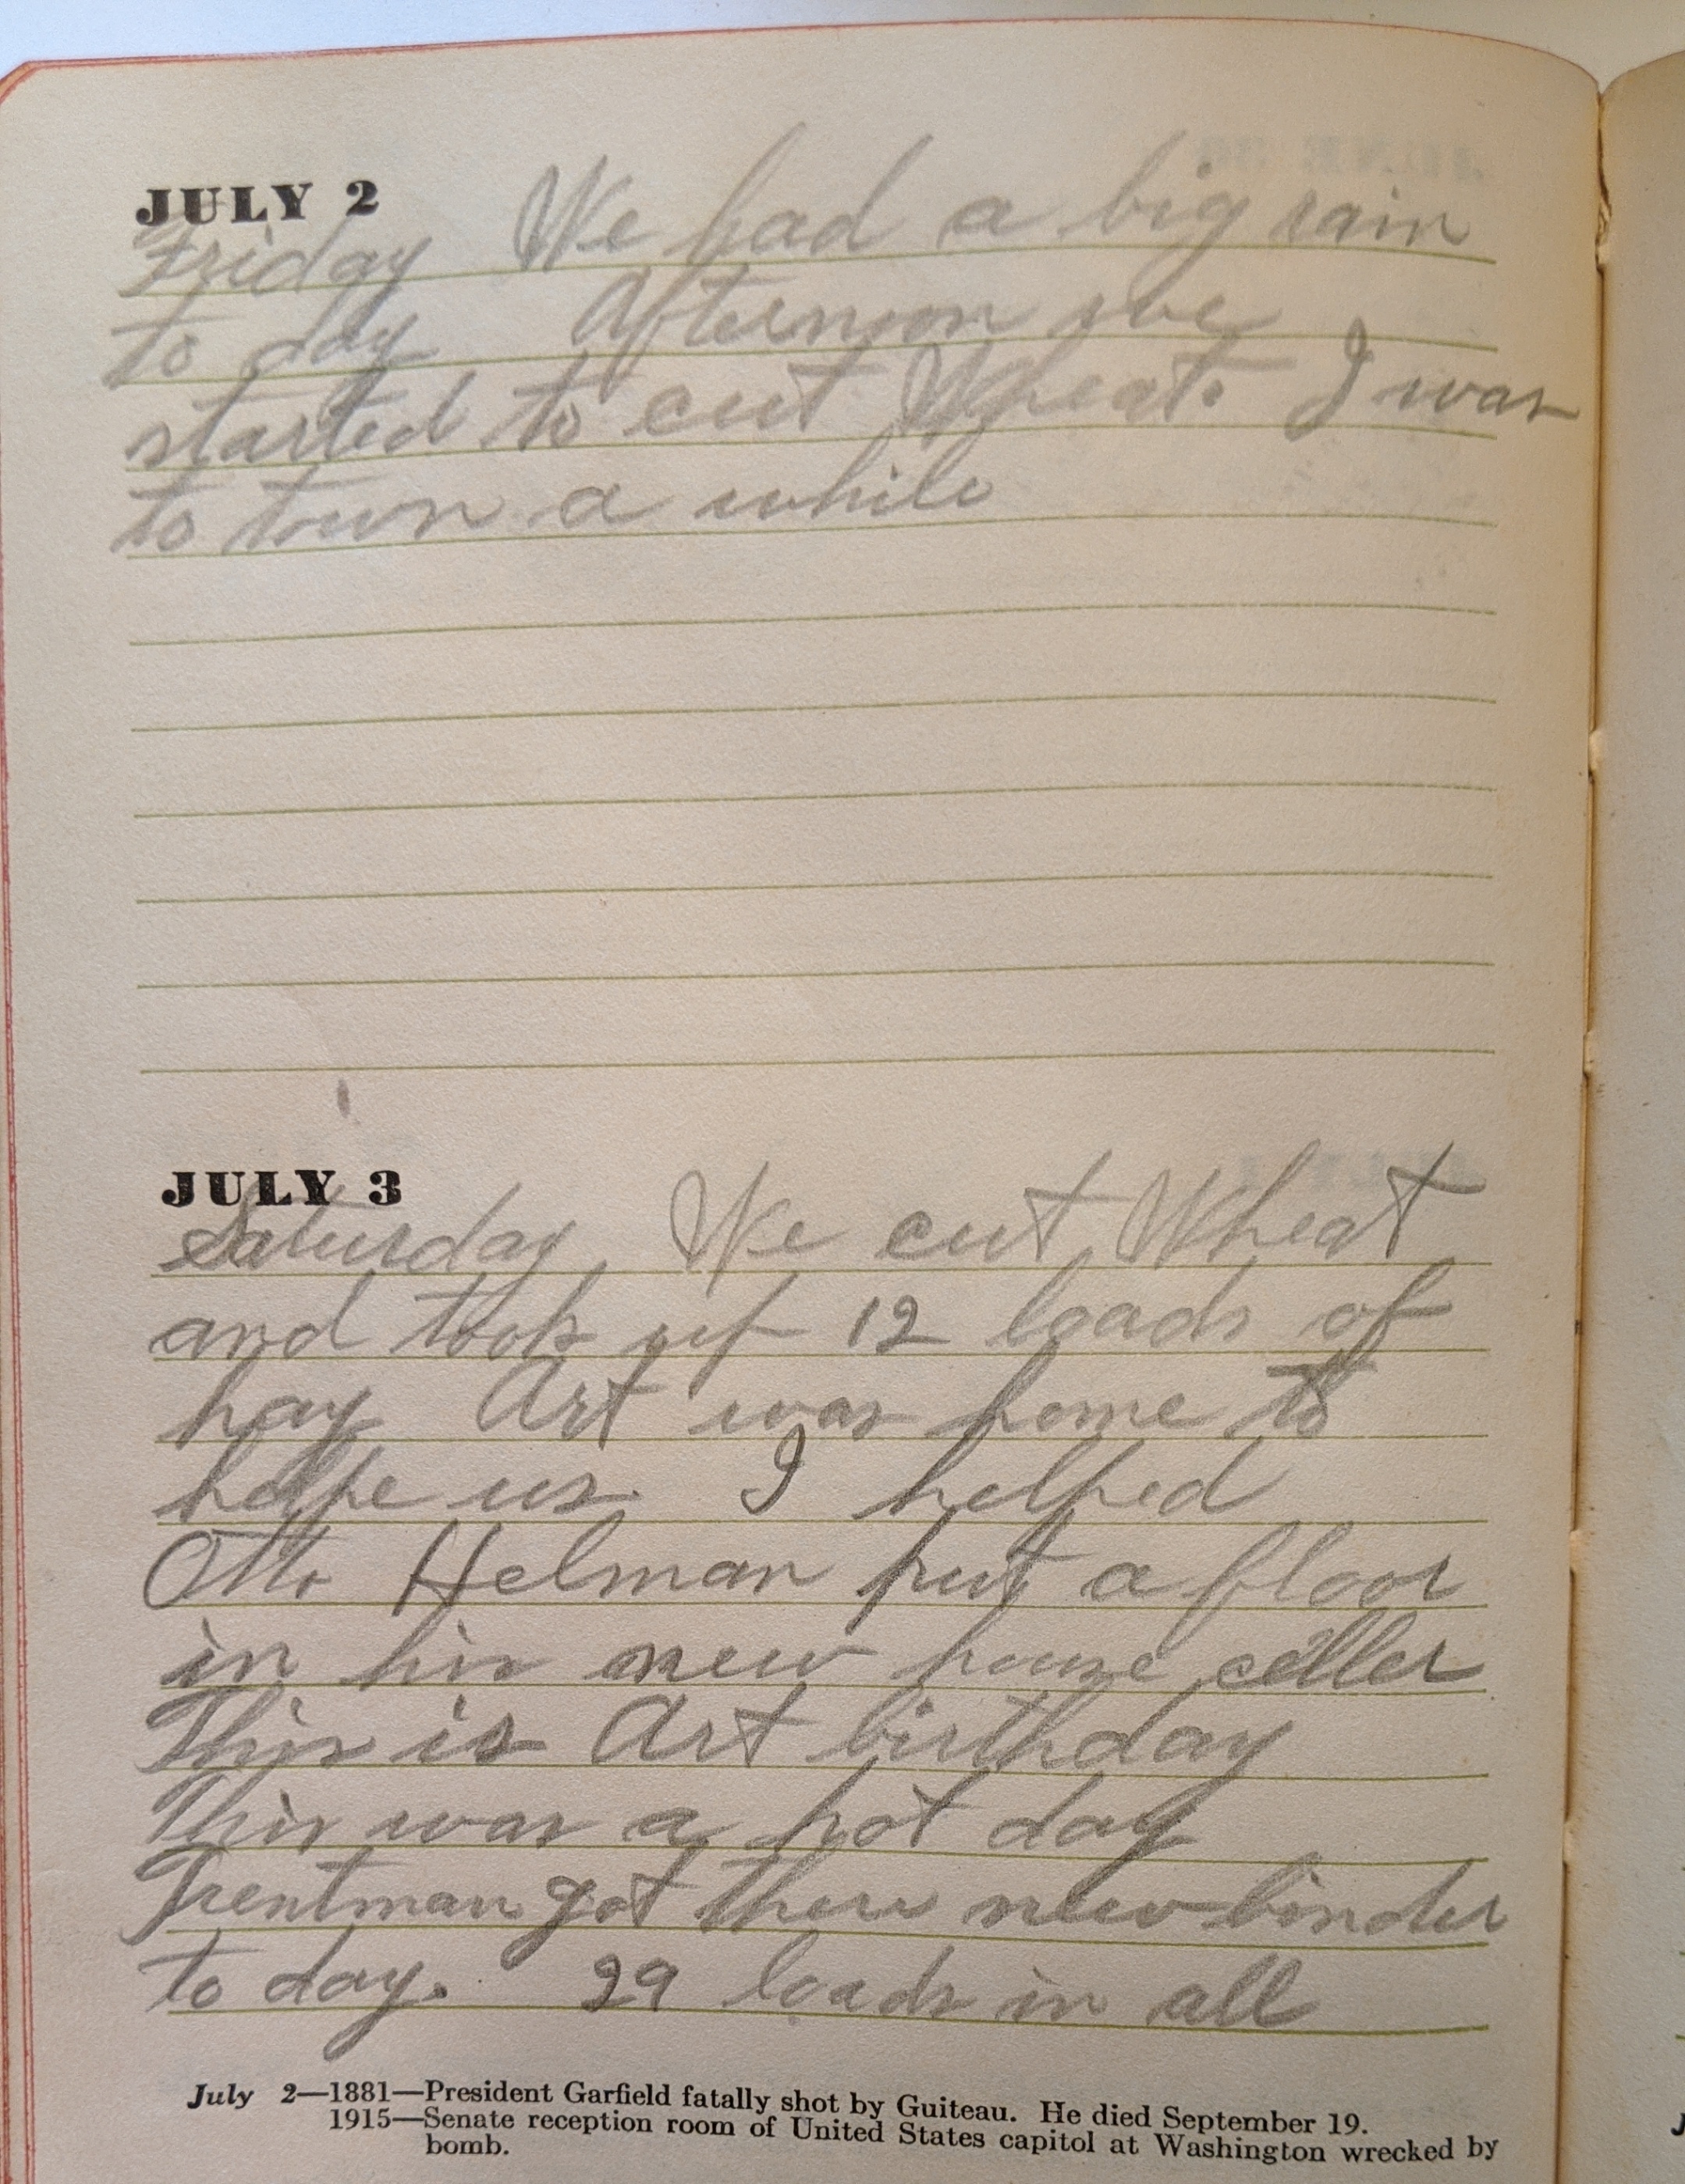 JULY 2
Friday We had a big rain
to day Afternoon we
started to cut Wheat. I was
to town a while
JULY 3
Saturday We cut Wheat
and took up 12 loads of
hay Art was home to
helpe us. I helped
Otto Helman put a floor
in his new house celler
This is Art birthday
This was a hot day
Trentman got there new binder
to day. 29 loads in all
July 2—1881—President Garfield fatally shot by Guiteau. He died September 19.
1915—Senate reception room of United States capitol at Washington wrecked by
bomb.